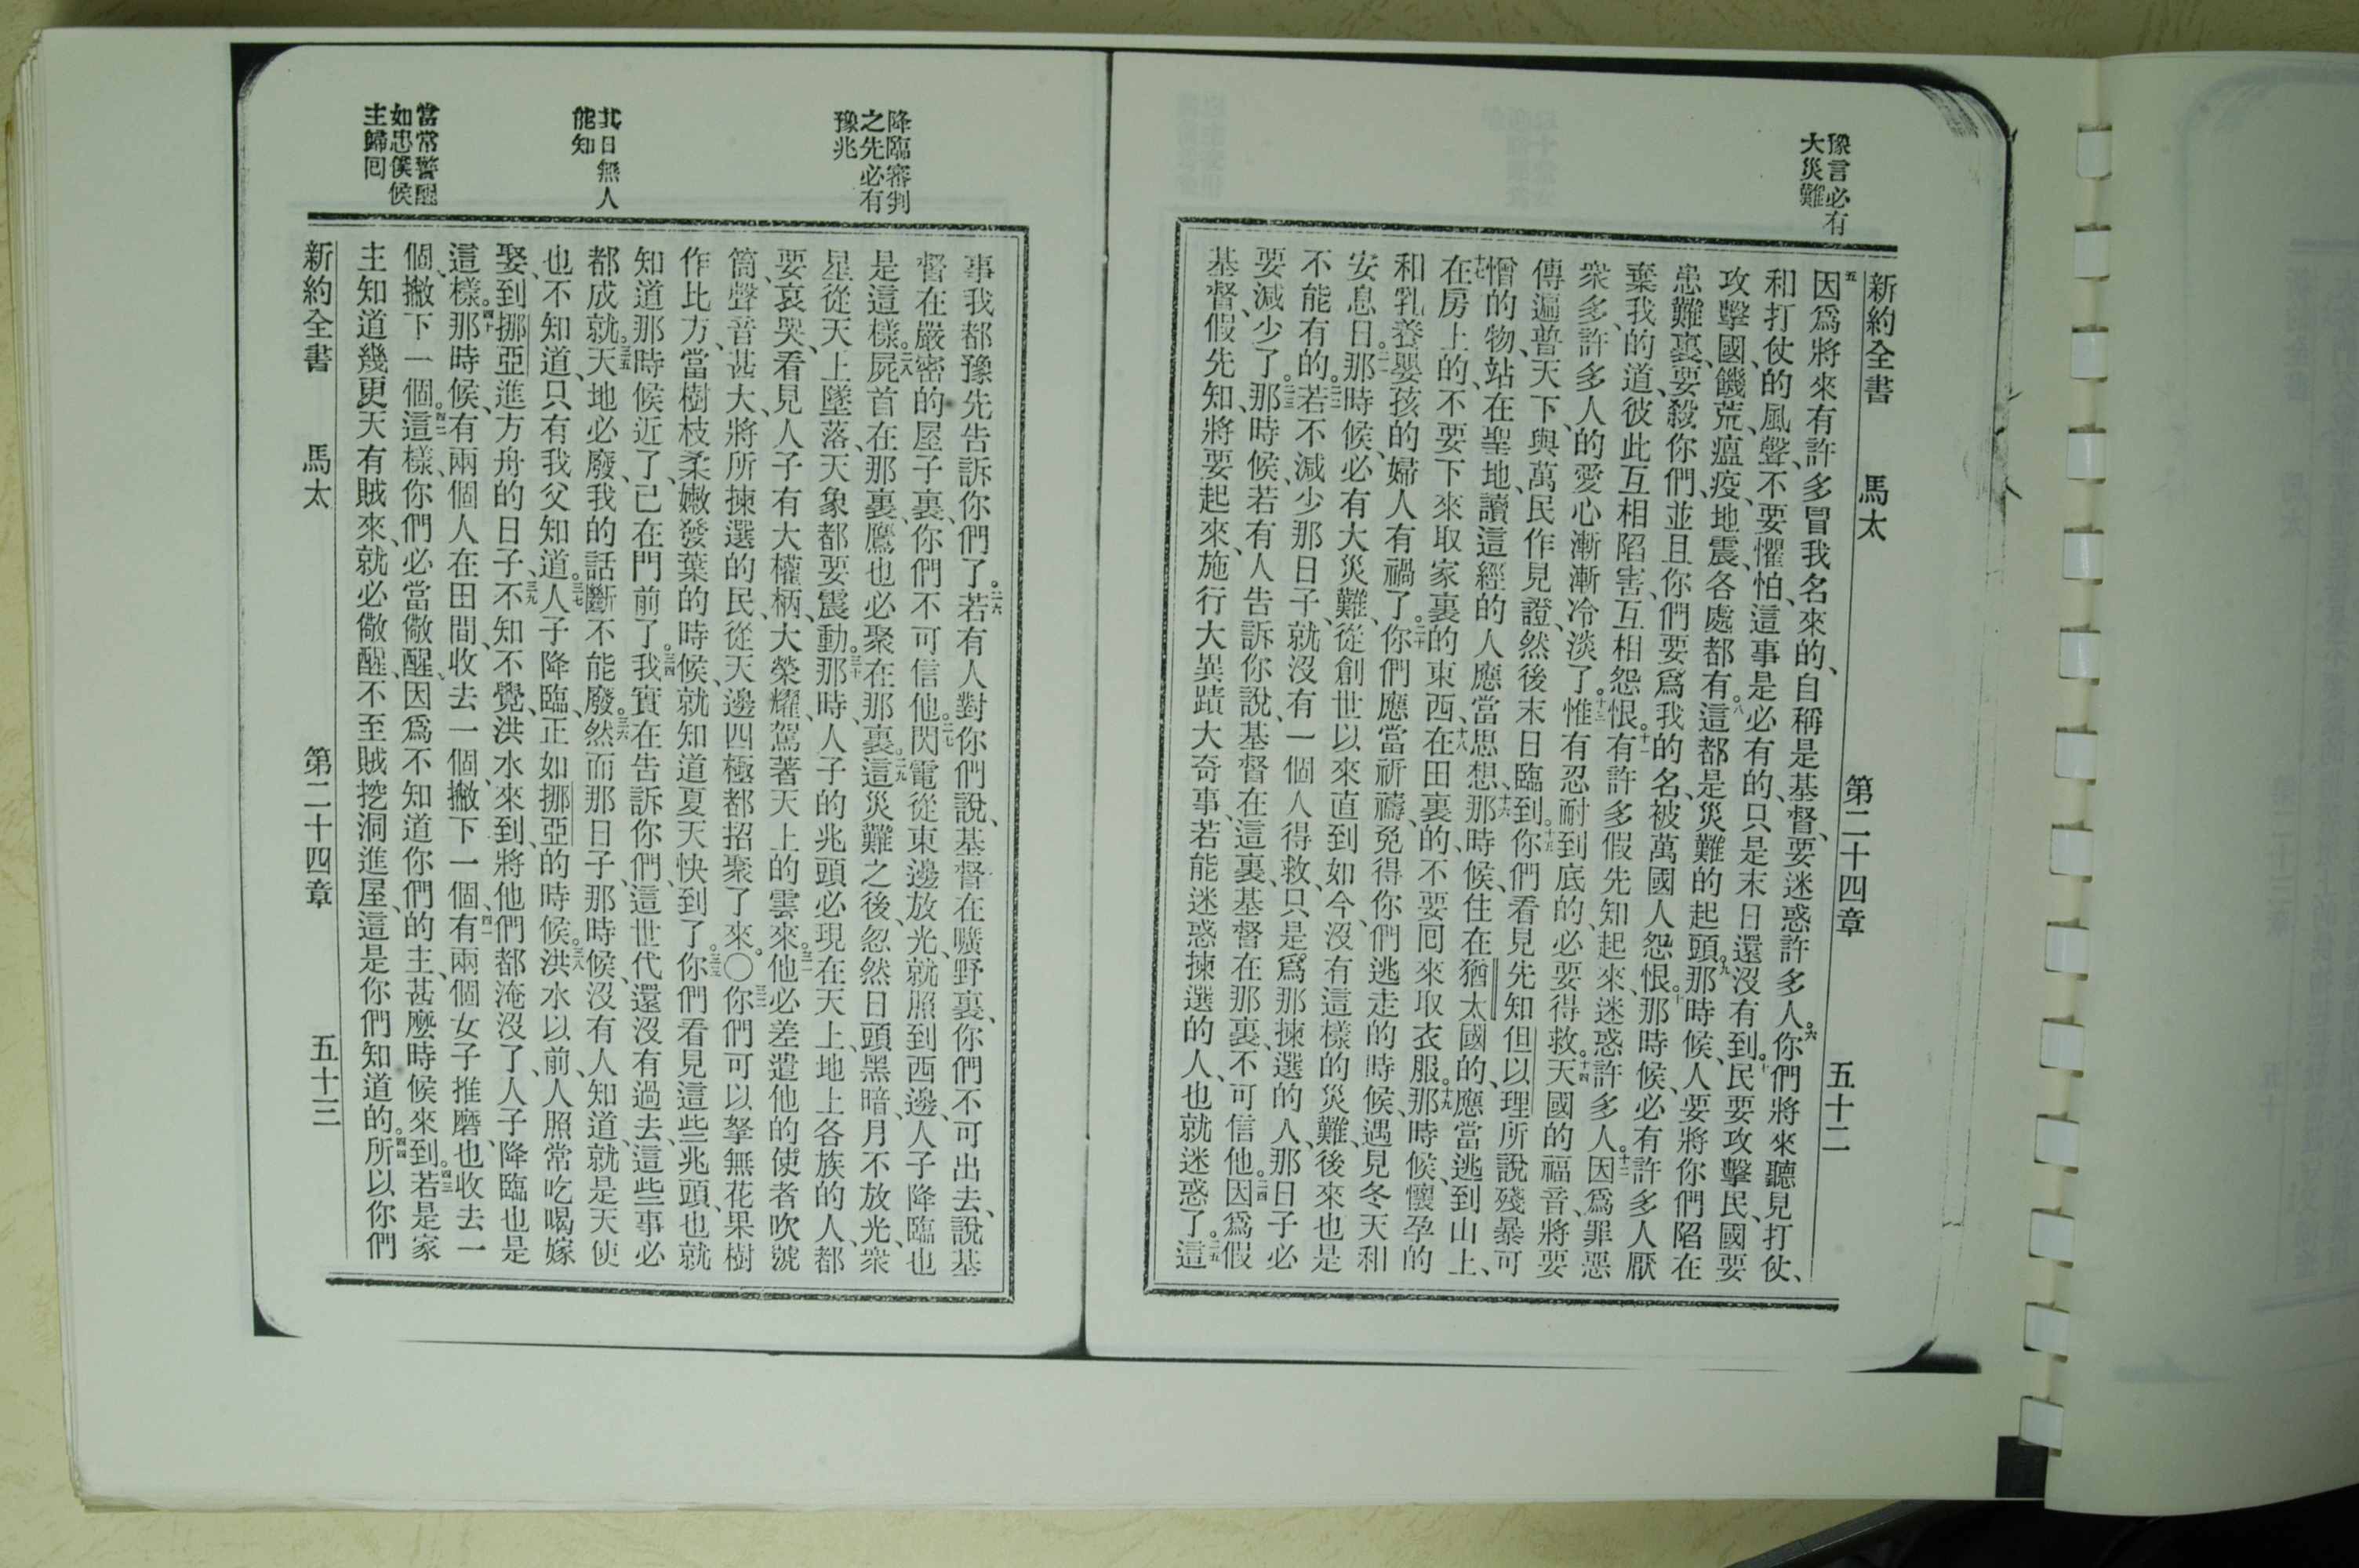 豫言必有
大災難
新約全書　馬太　第二十四章　五十二
五因爲將來有許多冒我名來的、自稱是基督、要迷惑許多人。六你們將來聽見打仗、
和打仗的風聲、不要懼怕、這事是必有的、只是末日還沒有到。七民要攻擊民、國要
攻擊國、饑荒、瘟疫、地震、各處都有。八這都是災難的起頭。九那時候、人要將你們陷在
患難裏、要殺你們、並且你們要爲我的名、被萬國人怨恨。十那時候、必有許多人厭
棄我的道、彼此互相陷害、互相怨恨。十一有許多假先知起來、迷惑許多人。十二因爲罪惡
衆多、許多人的愛心漸漸冷淡了。十三惟有忍耐到底的、必要得救。十四天國的福音、將要
傳遍普天下、與萬民作見證、然後末日臨到。十五你們看見先知但以理所說殘暴可
憎的物、站在聖地、讀這經的人應當思想、十六那時候、住在猶太國的、應當逃到山上、
十七在房上的、不要下來取家裏的東西、十八在田裏的、不要回來取衣服。十九那時候、懷孕的
和乳養嬰孩的婦人有禍了、二十你們應當祈禱、免得你們逃走的時候、遇見冬天和
安息日。二一那時候、必有大災難、從創世以來直到如今、沒有這樣的災難、後來也是
不能有的。二二若不減少那日子、就沒有一個人得救、只是爲那揀選的人、那日子必
要減少了。二三那時候、若有人告訴你說、基督在這裏、基督在那裏、不可信他。二四因爲假
基督、假先知、將要起來、施行大異蹟大奇事、若能迷惑揀選的人、也就迷惑了。二五這
降臨審判
之先必有
豫兆
其日無人
能知
當常警醒
如忠僕候
主歸回
事我都豫先告訴你們了。二六若有人對你們說、基督在曠野裏、你們不可出去、說基
督在嚴密的屋子裏、你們不可信他。二七閃電從東邊放光、就照到西邊、人子降臨也
是這樣。二八屍首在那裏、鷹也必聚在那裏。二九這災難之後、忽然日頭黑暗、月不放光、衆
星從天上墜落、天象都要震動。三十那時、人子的兆頭必現在天上、地上各族的人、都
要哀哭、看見人子有大權柄、大榮耀、駕著天上的雲來。三一他必差遣他的使者吹號
筒、聲音甚大、將所揀選的民、從天邊四極都招聚了來。〇三二你們可以拏無花果樹
作比方、當樹枝柔嫩發葉的時候、就知道夏天快到了。三三你們看見這些兆頭、也就
知道那時候近了、已在門前了。三四我實在告訴你們、這世代還沒有過去、這些事必
都成就。三五天地必廢、我的話斷不能廢。三六然而那日子、那時候、沒有人知道、就是天使
也不知道、只有我父知道。三七人子降臨、正如挪亞的時候。三八洪水以前、人照常吃喝嫁
娶、到挪亞進方舟的日子、三九不知不覺、洪水來到、將他們都淹沒了、人子降臨也是
這樣。四十那時候、有兩個人在田間、收去一個、撇下一個、四一有兩個女子推磨、也收去一
個、撇下一個。四二這樣、你們必當儆醒、因爲不知道你們的主、甚麼時候來到。四三若是家
主知道幾更天有賊來、就必儆醒、不至賊挖洞進屋、這是你們知道的。四四所以你們
新約全書　馬太　第二十四章　五十三